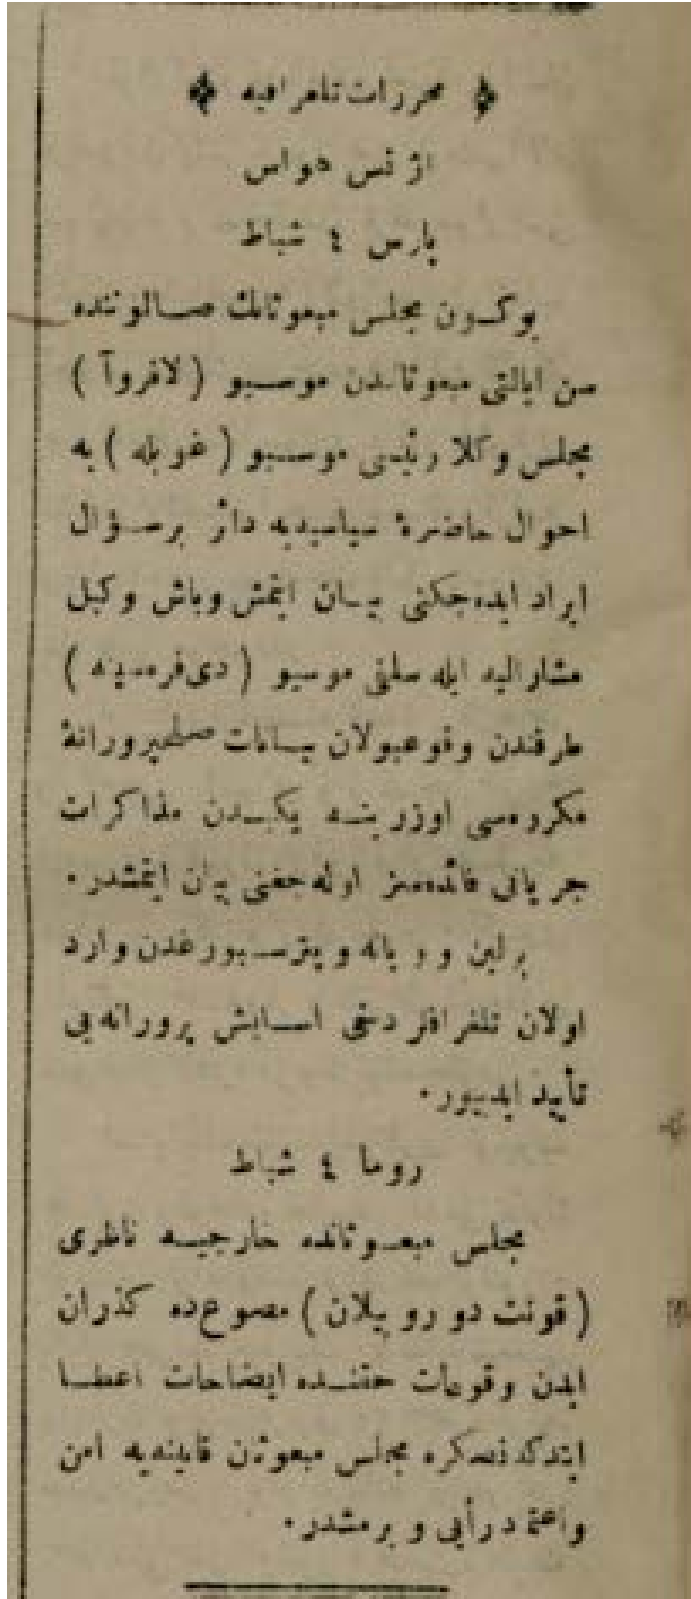 محررات تلغرافیه
اژنس هواس
پارس ٤ شباط
بوکون مجلس مبعوثانك صالوننده
سن ایالتی مبعوثاندن موسیو ( لافروآ )
مجلس وکلا رئیسی موسیو ( غوبله ) یه
احوال حاضرهٔ سیاسیه‌یه دائر برسؤال
ایراد ایده‌جکنی بیان ایتمش وباش وکیل
مشارالیه ایله سلفی موسیو ( دی‌فره‌سینه )
طرفندن وقوعبولان بیانات صلحپرورانهٔ
مکرره‌سی اوزرینه یکیدن مذاکرات
جریانی فائده‌سز اوله‌جغنی بیان ایتمشدر.
برلین و ویانه و پترسبورغدن وارد
اولان تلغرافلر دخی اسایش پرورانه‌یی
تأیید ایدییور.
روما ٤ شباط
مجلس مبعوثانده خارجیه ناظری
( قونت دو روبیلان ) مصوع‌ده کذران
ایدن وقوعات حقنده ایضاحات اعطا
ایتدکدنصکره مجلس مبعوثان قابینه‌یه امن
واعتماد رأیی ویرمشدر.